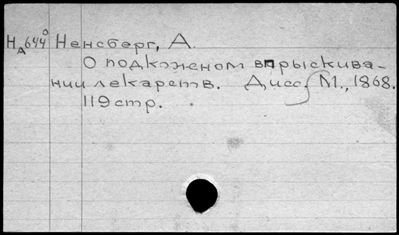 НА644⁰ Ненсберг, А.
О подкожном впрыскива-
нии лекарств. Дисс. М., 1868.
119 стр.